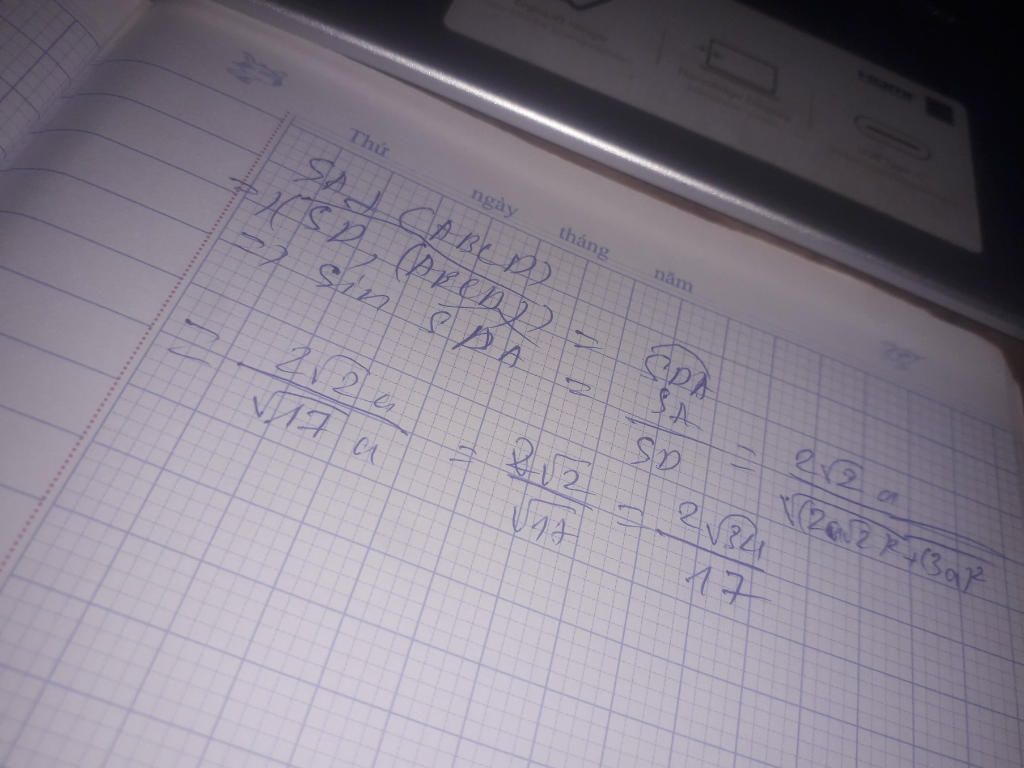 Thứ ngày tháng năm
SA ⊥ (ABCD)
=> (SD, (ABCD)) = SDA
=> sin SDA = SA/SD = 2√2 a/√((2a√2)²+(3a)²)
= 2√2 a/√17 a = 2√2/√17 = 2√34/17